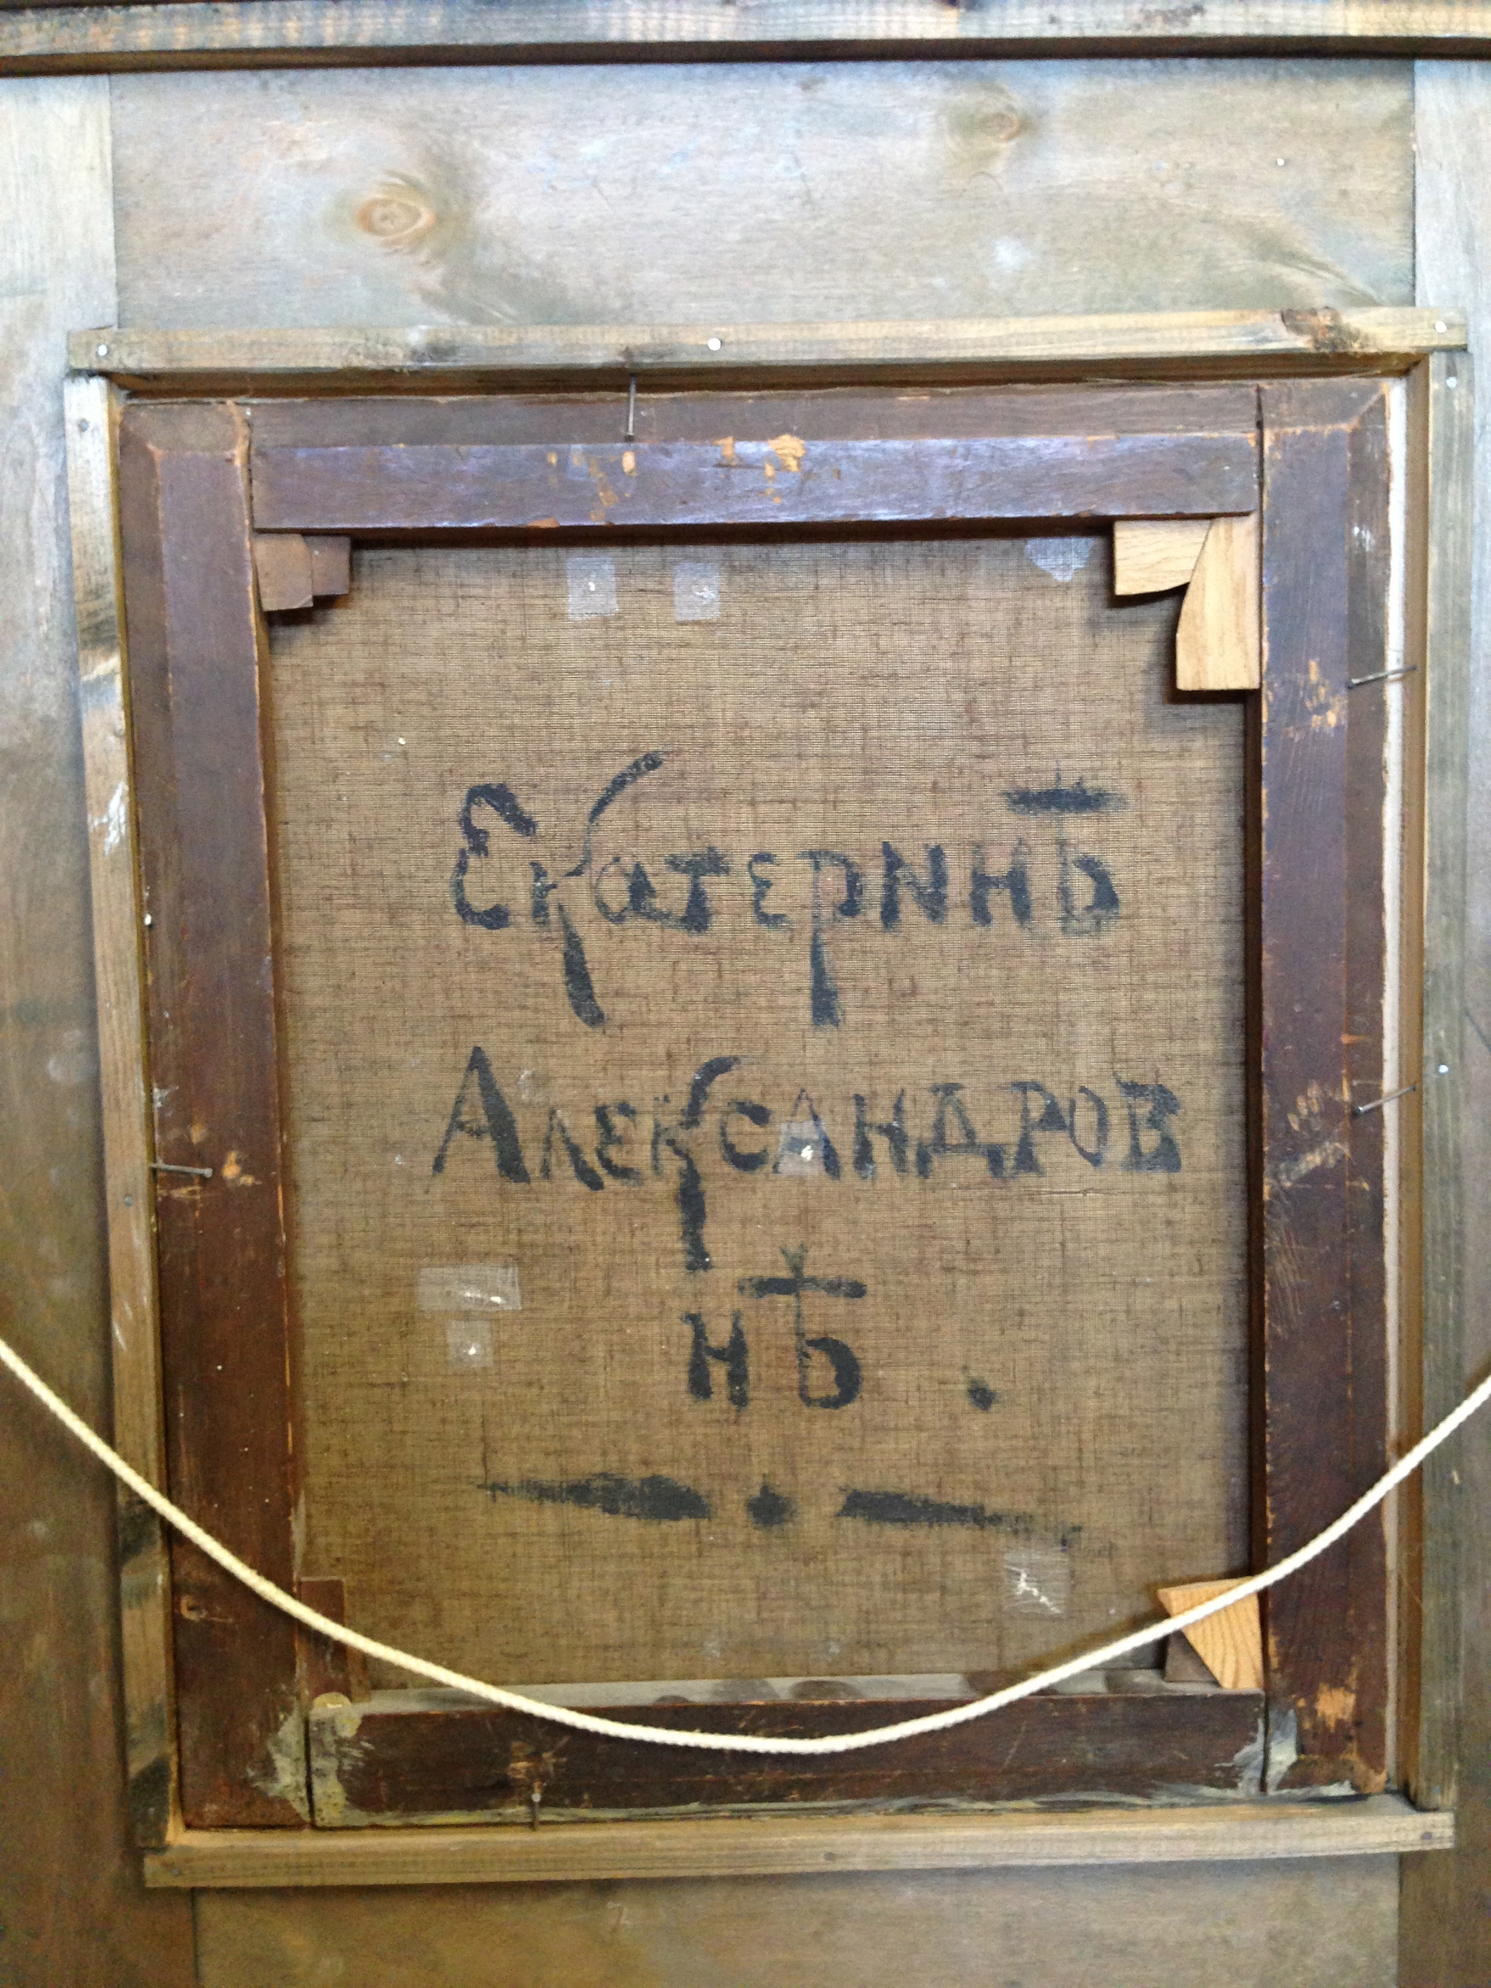 Екатеринѣ
Александров
нѣ.